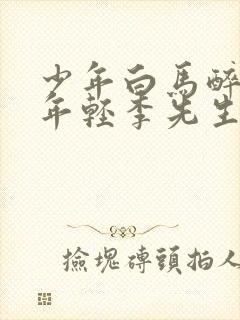 少年白馬醉
年輕李先生
撿塊磚頭拍人